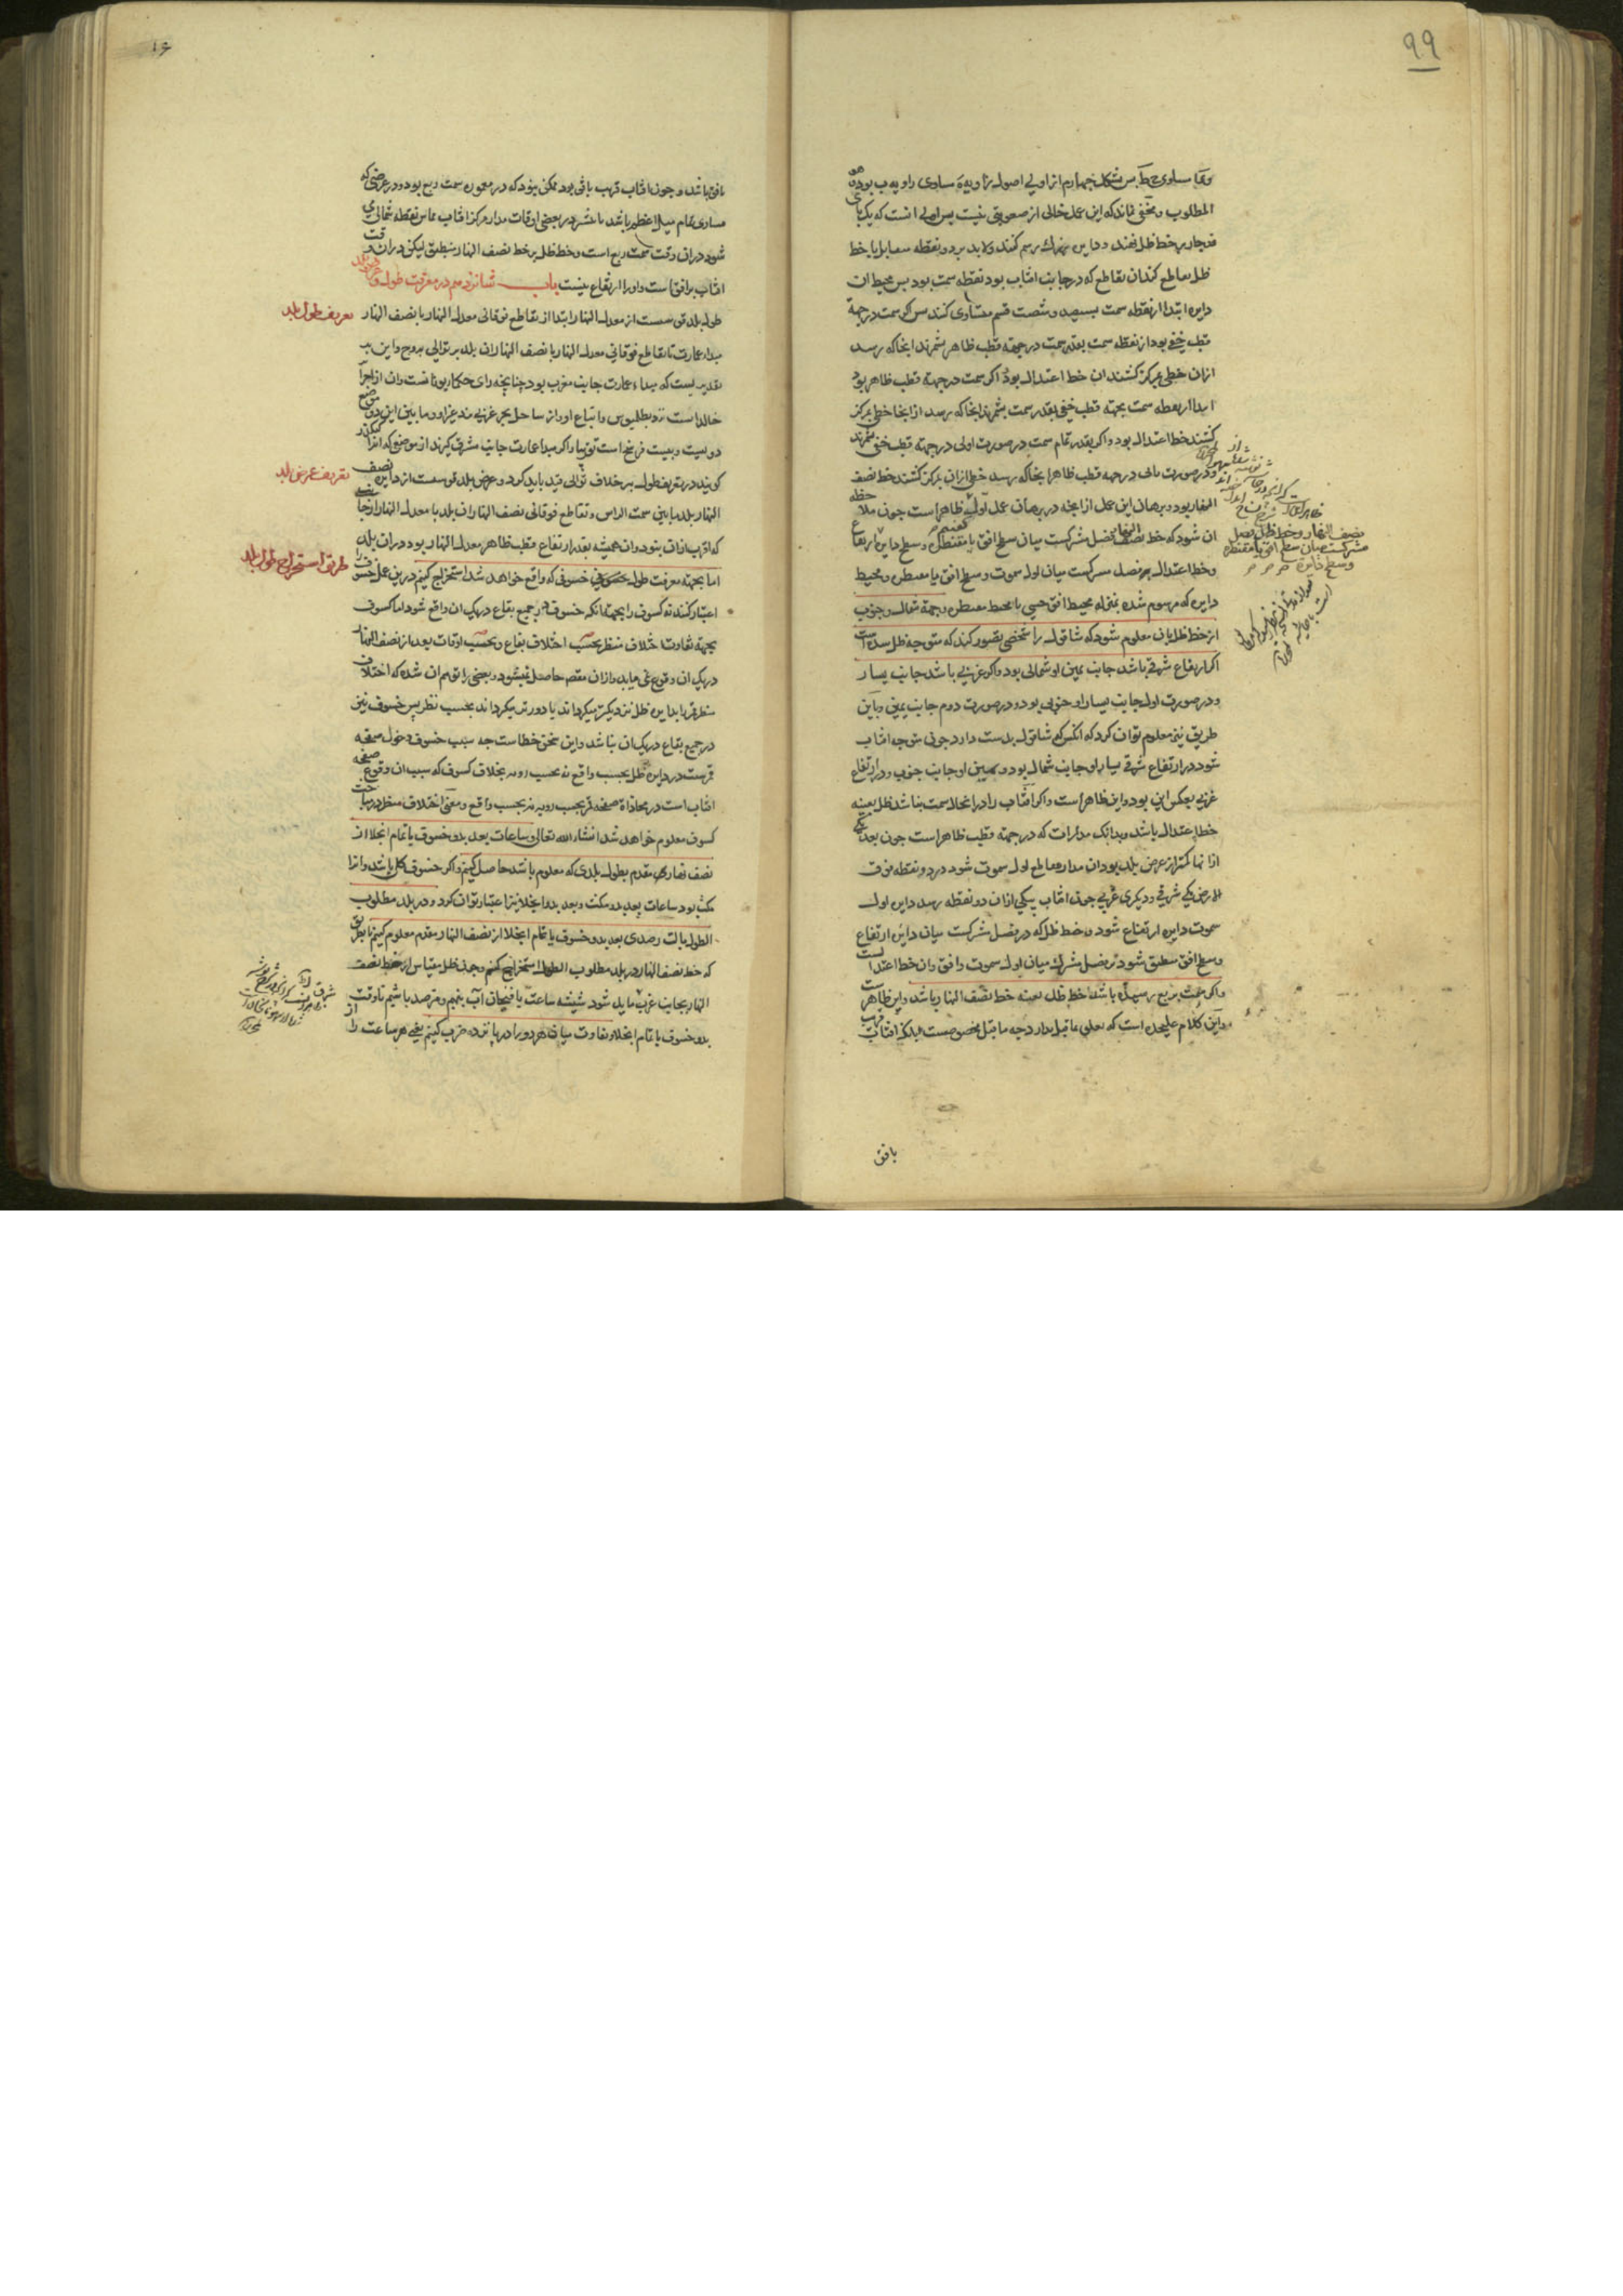 ۹۹
المطلوب و مخفی نماند که این عمل خالی از صعوبتی نیست پس اولی انست که یک پای
فرجار بر خط ظل نهند و دایره بزرک رسم کنند و لابد بر دو نقطه متقابل با خط
ظل تقاطع کند ان تقاطع که در جانب افتاب بود نقطه سمت بود پس محیط ان
دایره ابتدا از نقطه سمت بسیصد و شصت قسم متساوی کنند پس اکر سمت در جهة
قطب خفی بود از نقطه سمت بقدر سمت در جهة قطب ظاهر بشمرند انجا که رسد
ازان خطی بمرکز کشند ان خط اعتدال بود و اکر سمت در جهة قطب ظاهر بود
ابتدا از نقطه سمت بجهة قطب خفی بقدر سمت بشمرند انجا که رسد از انجا خطی بمرکز
کشند خط اعتدال بود و اکر بقدر تمام سمت در صورت اولی در جهة قطب خفی بشمرند
و در صورت ثانی در جهة قطب ظاهر انجا که رسد خطی ازان بمرکز کشند خط نصف
النهار بود و برهان این عمل از انچه در برهان عمل اول ظاهر است چون ملاحظه
ان شود که خط نصف النهار فصل مشترکست میان سطح افق یا مقنطره و سطح دایره ارتفاع
و خط اعتدال بر فصل مشترکست میان اول سموت و سطح افق یا مقنطره و محیط
دایره که مرسوم شده بمنزله محیط افق حسی یا محیط مقنطره و جهة شمال و جنوب
از خط ظل بان معلوم شود که شاقول را شخصی تصور کند که متوجه ظل شده است
اکر ارتفاع شرقی باشد جانب یمین او شمالی بود و اکر غربی باشد جانب یسار
و در صورت اول جانب یسار او جنوبی بود و در صورت دوم جانب یمین و باین
طریق نیز معلوم توان کرد که انکس که شاقول بدست دارد چون متوجه افتاب
شود در ارتفاع شرقی یسار او جانب شمال بود و یمین او جانب جنوب و در ارتفاع
غربی بعکس این بود و این ظاهر است و اکر افتاب را در انحال سمت نباشد ظل بعینه
خط اعتدال باشد و بدانک مدارات که در جهة قطب ظاهر است چون بعد یکی
از انها کمتر از عرض بلد بود ان مدار مقاطع اول سموت شود در دو نقطه فوق
الارض یکی شرقی و دیکری غربی چون افتاب بیکی ازان دو نقطه رسد دایره اول
سموت دایره ارتفاع شود و خط ظل که در فصل مشترکست میان دایره ارتفاع
و سطح افق منطبق شود بر فصل مشترک میان اول سموت و افق و ان خط اعتدالست
و اکر سمت بربع رسیده باشد خط ظل بعینه خط نصف النهار باشد و این ظاهر است
و این کلام علیحده است که تعلق بما قبل ندارد چه ما قبل مخصوصست بانکه افتاب
بافق
نصف النهار و خط ظل فصل
مشترکست میان سطح افق یا مقنطره
و سطح دایره
۱۶
بافق باشد و چون افتاب قریب بافق بود ممکن نبود که در معموره سمت ربع بود و در عرضی که
مساوی تمام میل اعظم باشد یا بیشتر در بعضی اوقات مدار مرکز افتاب مماس نقطه شمالی
شود دران وقت سمت ربع است و خط ظل بر خط نصف النهار منطبق لیکن دران وقت
افتاب بر افق است و او را ارتفاع نیست باب شانزدهم در معرفت طول و عرض بلد
تعریف طول بلد
طول بلد قوسیست از معدل النهار ابتدا از تقاطع فوقانی معدل النهار با نصف النهار
مبداء عمارت تا تقاطع فوقانی معدل النهار با نصف النهار ان بلد بر توالی بروج و این بر
تقدیریست که مبداء عمارت جانب مغرب بود چنانچه رای حکماء یونانست و ان از جزایر
خالداتست نزد بطلیموس و اتباع او و از ساحل بحر غربی نزد غیر او و ما بین این دو موضع
دویست و بیست فرسخ است تقریبا و اکر مبدا عمارت جانب مشرق کیرند از موضعی که انرا
کویند در تعریف طول بر خلاف توالی قید باید کرد و عرض بلد قوسیست از دایره نصف
تعریف عرض بلد
النهار بلد ما بین سمت الراس و تقاطع فوقانی نصف النهار ان بلد با معدل النهار از جانبی
که اقرب ازان نبود و ان همیشه بقدر ارتفاع قطب ظاهر معدل النهار بود دران بلد
طریق استخراج طول بلد
اما بجهة معرفت طول خسوفی که واقع خواهد شد استخراج کنیم و درین عمل خسوف را
اعتبار کنند نه کسوف را بجهة انکه خسوف در جمیع بقاع در یک ان واقع شود اما کسوف
بجهة تفاوت اختلاف منظر بحسب اختلاف بقاع و بحسب اوقات بعد از نصف النهار
در یک ان وقوع نمی یابد و ازان مقصد حاصل نمیشود و بعضی را توهم ان شده که اختلاف
منظر قمر را بدایره ظل نزدیکتر میکرداند یا دورتر میکرداند بحسب نظر پس خسوف نیز
در جمیع بقاع در یک ان نباشد و این سخن خطاست چه سبب خسوف دخول صفحه
قمرست در دایره ظل بحسب واقع نه بحسب رویه بخلاف کسوف که سبب ان وقوع صفحه
افتاب است در محاذاة صفحه قمر بحسب رویه نه بحسب واقع و معنی اختلاف منظر در مباحث
کسوف معلوم خواهد شد انشاء الله تعالی و ساعات بعد بدو خسوف یا تمام انجلا از
نصف نهار مقدم بطول بلدی که معلوم باشد حاصل کنیم و اکر خسوف کلی باشد و انرا
مکث بود ساعات بعد بدو مکث و بعد بدو انجلا نیز اعتبار توان کرد و در بلد مطلوب
الطول بالت رصدی بعد بدو خسوف یا تمام انجلا از نصف النهار مقدم معلوم کنیم یا بطریق
که خط نصف النهار در بلد مطلوب الطول استخراج کنیم و چون ظل مقیاس از خط نصف
النهار بجانب غرب مایل شود شیشه ساعت یا فنجان آب بنهیم و مترصد باشیم تا وقت
بدو خسوف یا تمام انجلا و تفاوت میان هر دو را در پانزده ضرب کنیم یعنی هر ساعت را